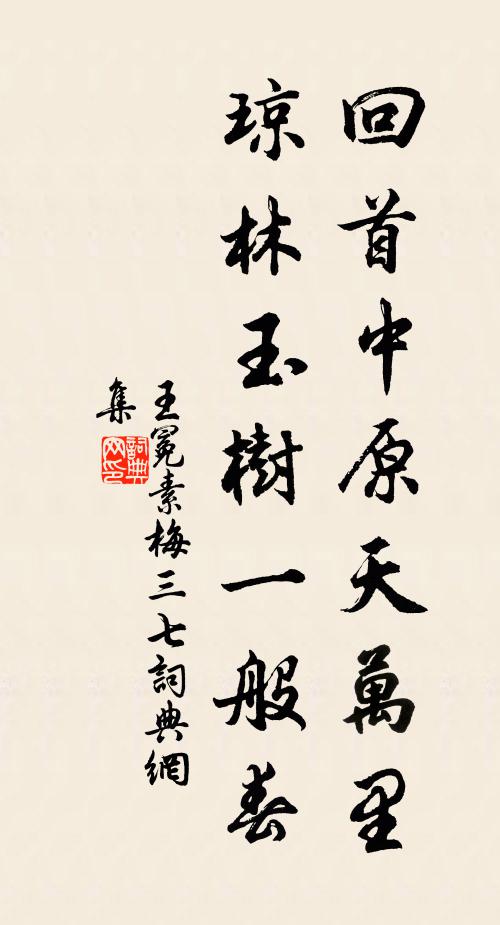 回首中原天萬里
琼林玉樹一般春
王冕素梅三七詞典網
集
詞典
网印